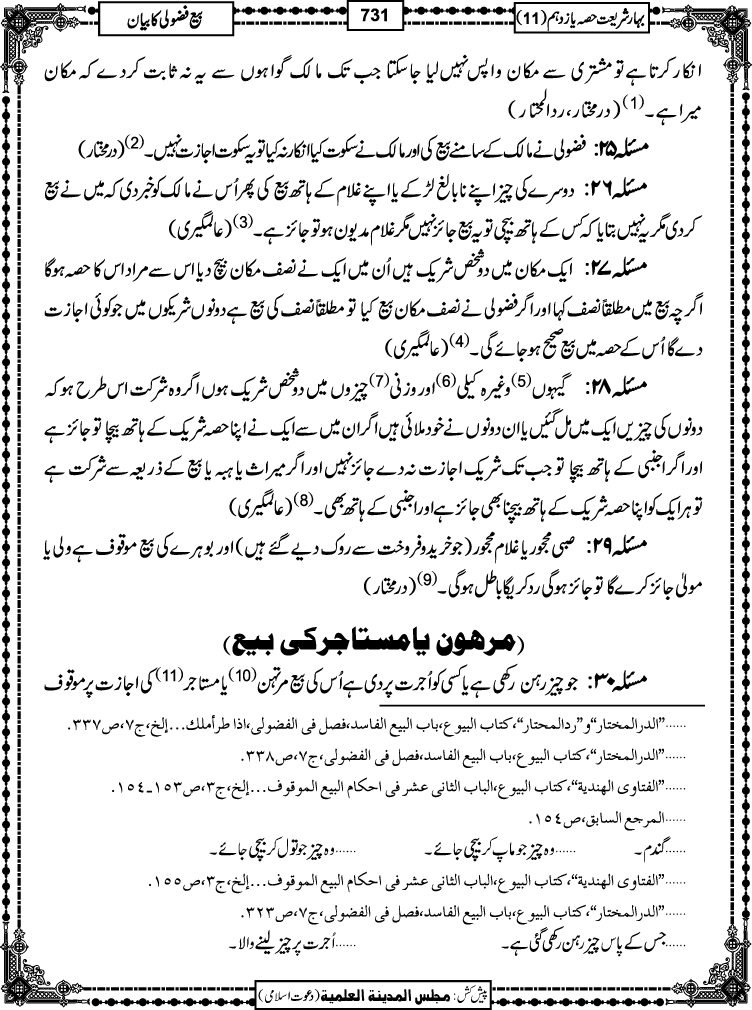 بہارِ شریعت حصہ یازدہم (11)
731
بیع فضولی کا بیان
انکار کرتا ہے تو مشتری سے مکان واپس نہیں لیا جا سکتا جب تک مالک گواہوں سے یہ نہ ثابت کر دے کہ مکان
میرا ہے۔(1) (درمختار، ردالمحتار)
مسئلہ ۲۵: فضولی نے مالک کے سامنے بیع کی اور مالک نے سکوت کیا انکار نہ کیا تو یہ سکوت اجازت نہیں۔(2) (درمختار)
مسئلہ ۲۶: دوسرے کی چیز اپنے نابالغ لڑکے یا اپنے غلام کے ہاتھ بیع کی پھر اُس نے مالک کو خبر دی کہ میں نے بیع
کر دی مگر یہ نہیں بتایا کہ کس کے ہاتھ بیچی تو یہ بیع جائز نہیں مگر غلام مدیون ہو تو جائز ہے۔(3) (عالمگیری)
مسئلہ ۲۷: ایک مکان میں دو شخص شریک ہیں اُن میں ایک نے نصف مکان بیچ دیا اس سے مراد اس کا حصہ ہوگا
اگرچہ بیع میں مطلقاً نصف کہا اور اگر فضولی نے نصف مکان بیع کیا تو مطلقاً نصف کی بیع ہے دونوں شریکوں میں جو کوئی اجازت
دے گا اُس کے حصہ میں بیع صحیح ہو جائے گی۔(4) (عالمگیری)
مسئلہ ۲۸: گیہوں(5) وغیرہ کیلی(6) اور وزنی(7) چیزوں میں دو شخص شریک ہوں اگر وہ شرکت اس طرح ہو کہ
دونوں کی چیزیں ایک میں مل گئیں یا ان دونوں نے خود ملائی ہیں اگر ان میں سے ایک نے اپنا حصہ شریک کے ہاتھ بیچا تو جائز ہے
اور اگر اجنبی کے ہاتھ بیچا تو جب تک شریک اجازت نہ دے جائز نہیں اور اگر میراث یا ہبہ یا بیع کے ذریعہ سے شرکت ہے
تو ہر ایک کو اپنا حصہ شریک کے ہاتھ بیچنا بھی جائز ہے اور اجنبی کے ہاتھ بھی۔(8) (عالمگیری)
مسئلہ ۲۹: صبی محجور یا غلام محجور (جو خرید و فروخت سے روک دیے گئے ہیں) اور بوہرے کی بیع موقوف ہے ولی یا
مولیٰ جائز کرے گا تو جائز ہوگی رد کریگا باطل ہوگی۔(9) (درمختار)
(مرہون یا مستاجر کی بیع)
مسئلہ ۳۰: جو چیز رہن رکھی ہے یا کسی کو اُجرت پر دی ہے اُس کی بیع مرتہن(10) یا مستاجر(11) کی اجازت پر موقوف
......"الدرالمختار" و "ردالمحتار"، كتاب البيوع، باب البيع الفاسد، فصل في الفضولي، اذا طرأ ملك...إلخ، ج۷، ص۳۳۷.
......"الدرالمختار"، كتاب البيوع، باب البيع الفاسد، فصل في الفضولي، ج۷، ص۳۳۸.
......"الفتاوى الهندية"، كتاب البيوع، الباب الثاني عشر في احكام البيع الموقوف...إلخ، ج۳، ص۱۵۳-۱۵٤.
......المرجع السابق، ص۱۵٤.
......گندم۔ ......وہ چیز جو ماپ کر بیچی جائے۔ ......وہ چیز جو تول کر بیچی جائے۔
......"الفتاوى الهندية"، كتاب البيوع، الباب الثاني عشر في احكام البيع الموقوف...إلخ، ج۳، ص۱۵۵.
......"الدرالمختار"، كتاب البيوع، باب البيع الفاسد، فصل في الفضولي، ج۷، ص۳۲۳.
......جس کے پاس چیز رہن رکھی گئی ہے۔ ......اُجرت پر چیز لینے والا۔
پیش کش: مجلس المدینۃ العلمیۃ (دعوتِ اسلامی)